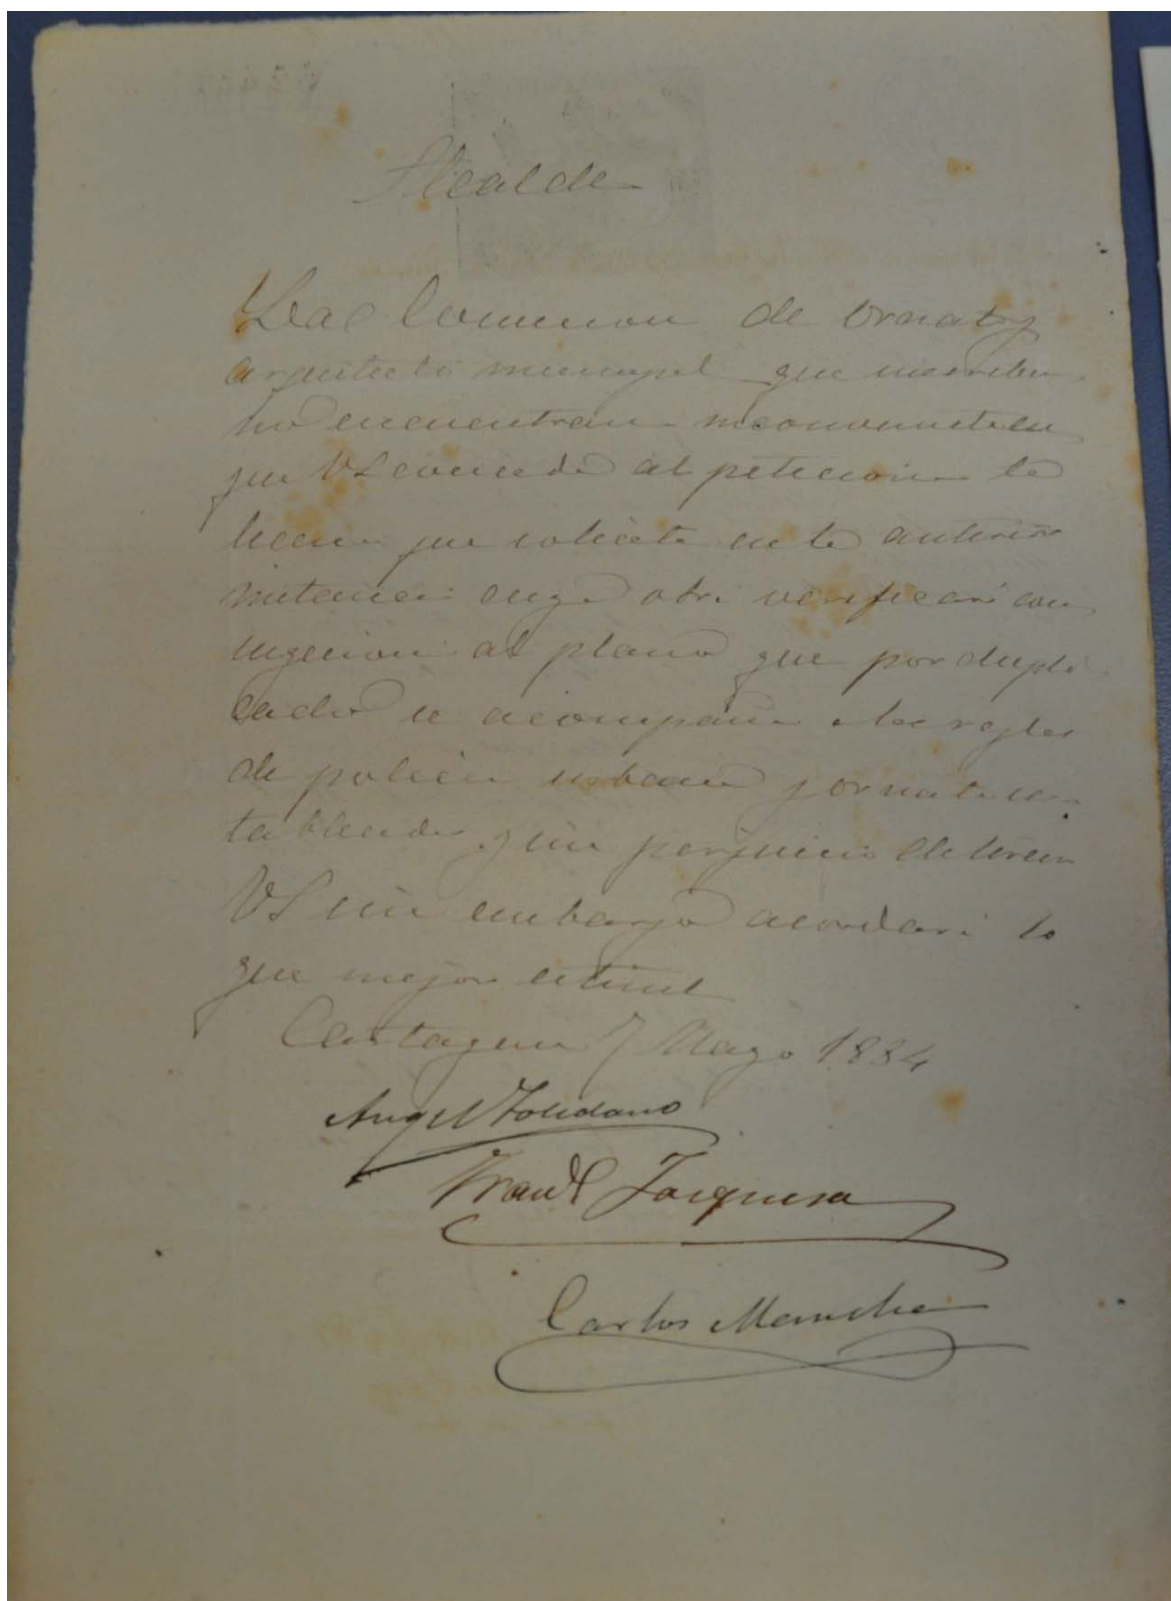 Alcalde
La Comision de Ornato y
arquitecto municipal que suscriben
no encuentran inconveniente en
que VS conceda al peticion la
licencia que solicita en la anterior
instancia cuya obra verificará con
sugecion al plano que por dupli
cado se acompaña a las reglas
de policia urbana y ornato es
tablecidas y sin perjuicio de tercero
VS sin embargo acordará lo
que mejor estime
Cartagena 7 Mayo 1884
Angel Toledano
Carlos Mancha